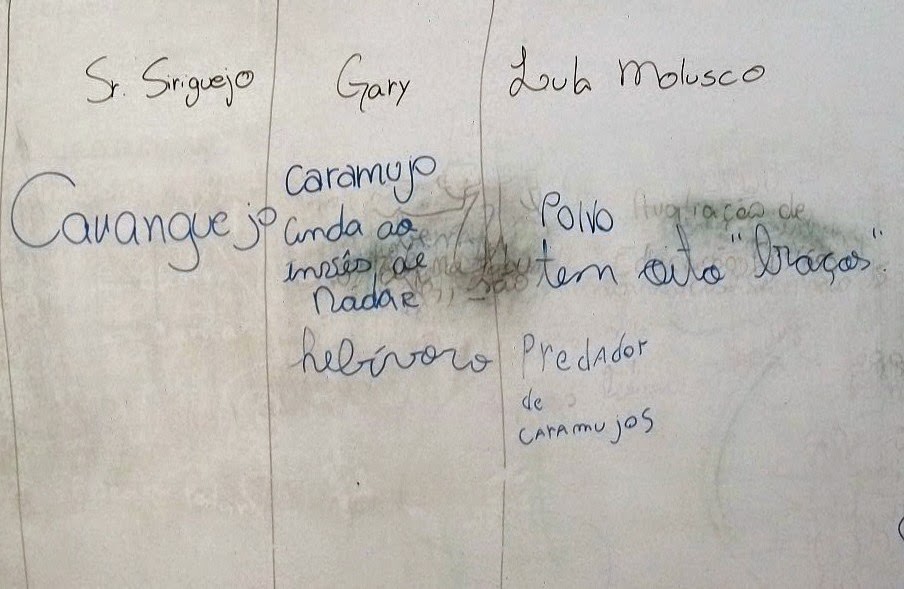 Sr. Siriguejo
Gary
Lula Molusco
Cauanguejo
caramujo
anda ao
invés de
nadar
helbívoro
Polvo
tem oito "braços".
Predador
de
caramujos